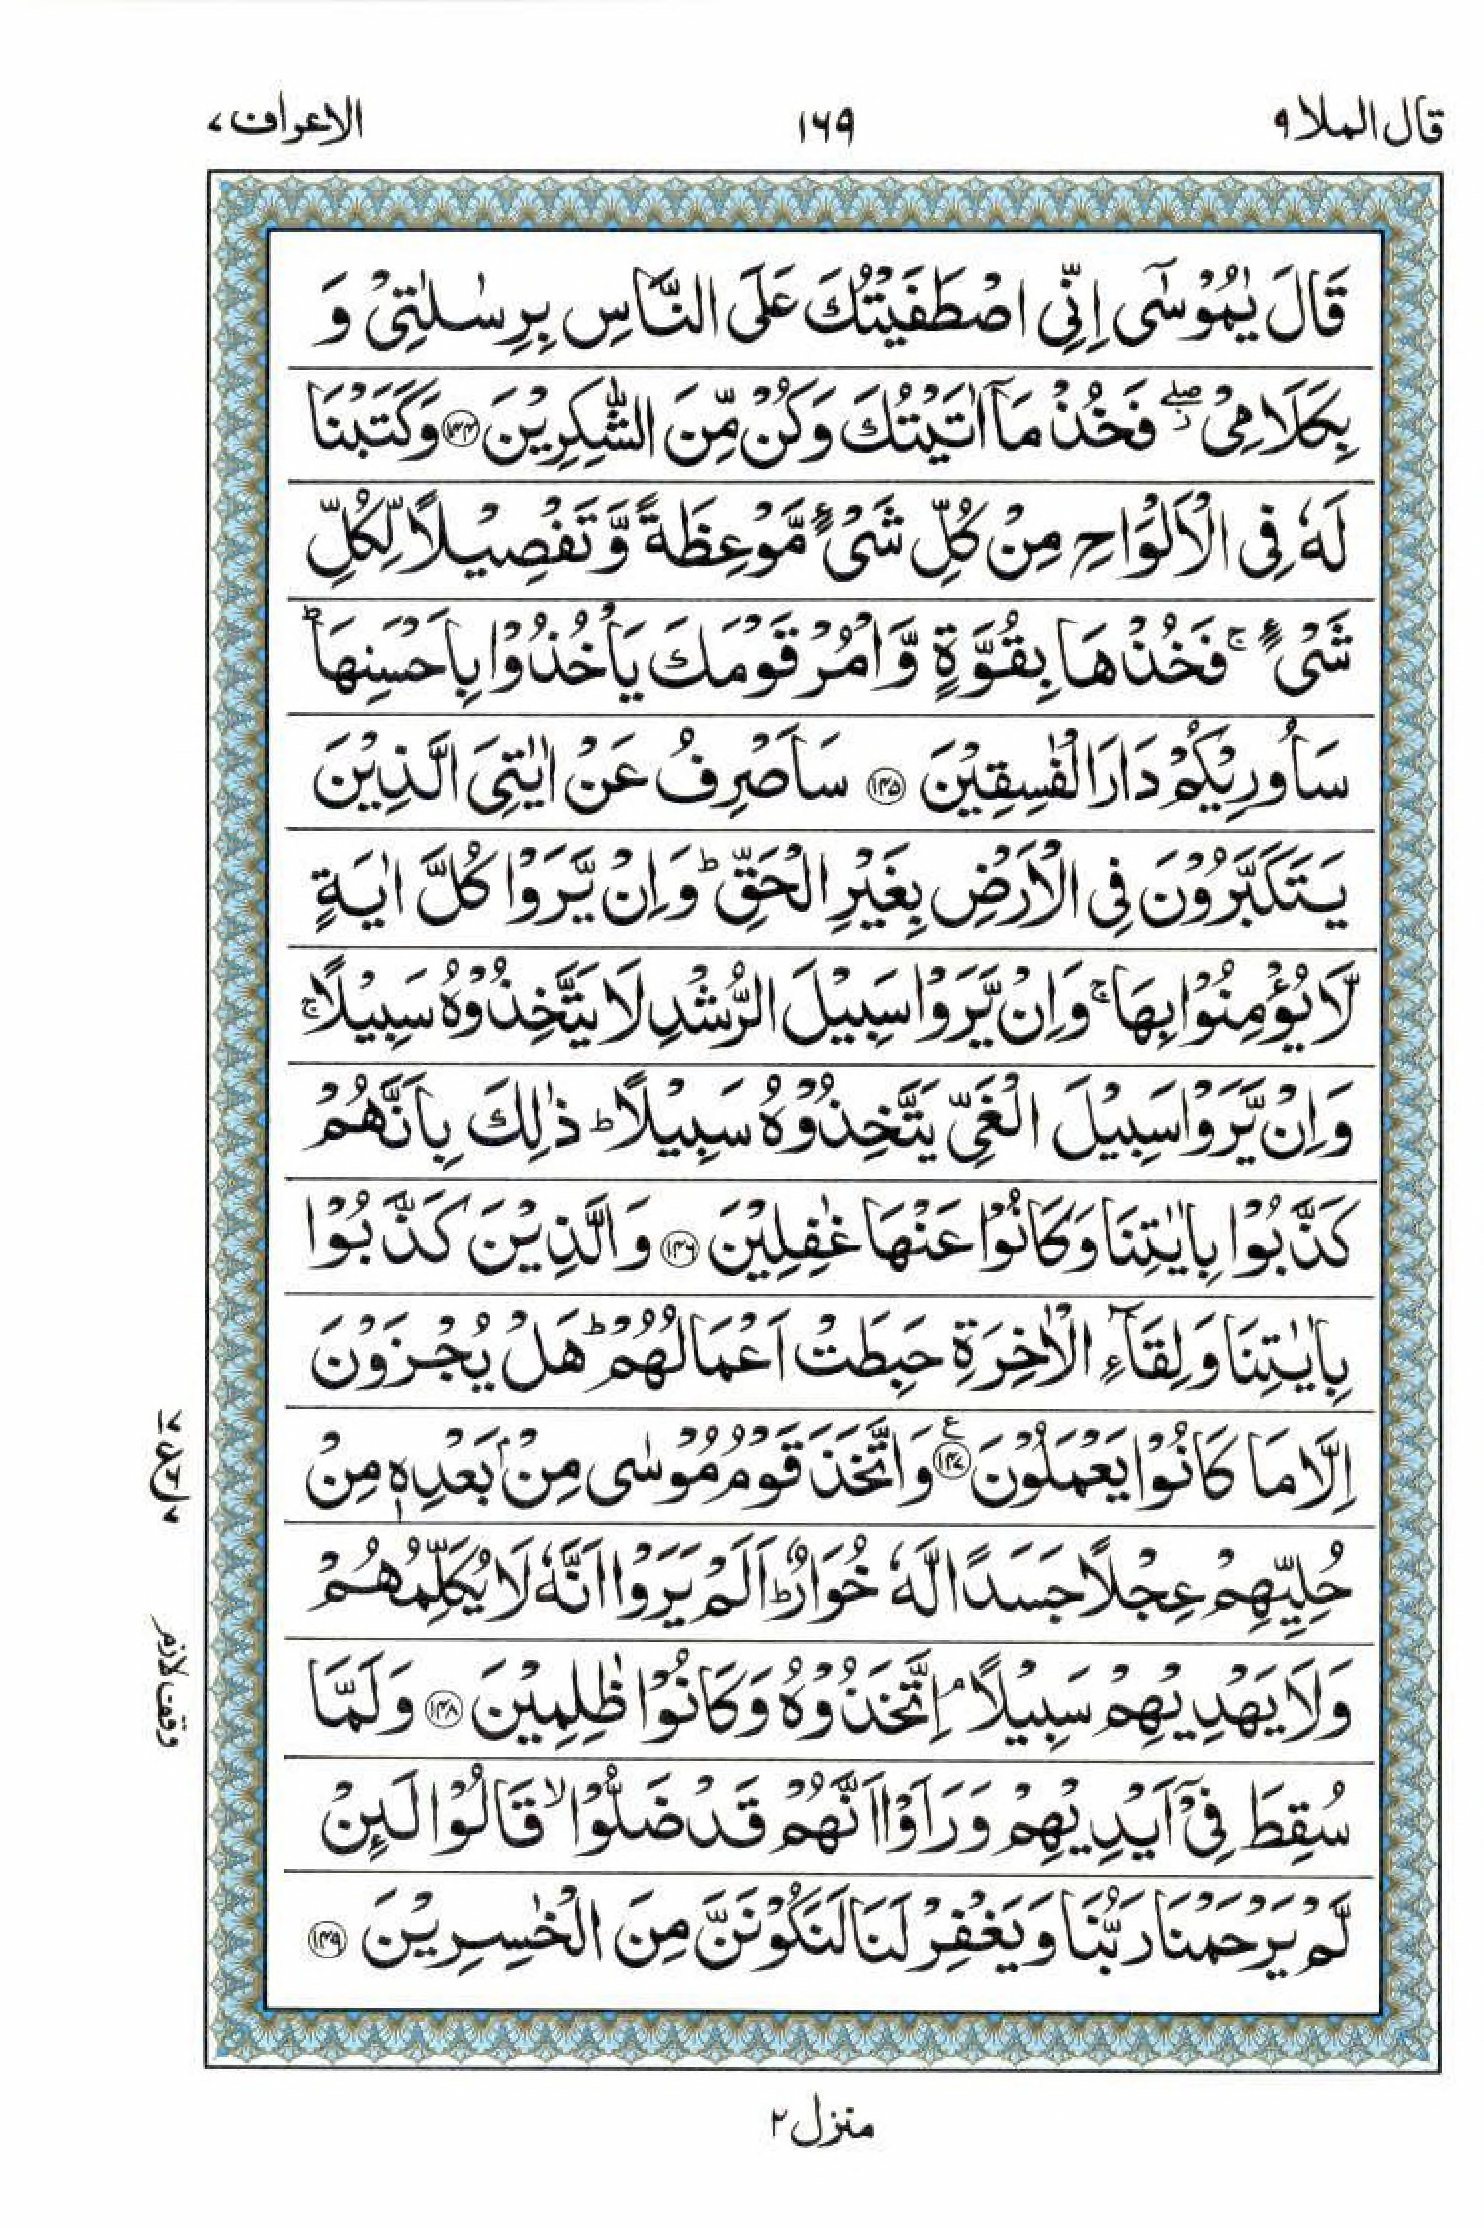 قال الملا ٩
١٦٩
الاعراف ٧
قَالَ يٰمُوْسٰٓى اِنِّى اصْطَفَيْتُكَ عَلَى النَّاسِ بِرِسٰلٰتِىْ وَ
بِكَلَامِىْ ۖ٘ فَخُذْ مَاۤ اٰتَيْتُكَ وَكُنْ مِّنَ الشّٰكِرِيْنَ ﴿۱۴۴﴾ وَكَتَبْنَا
لَهٗ فِى الْاَلْوَاحِ مِنْ كُلِّ شَىْءٍ مَّوْعِظَةً وَّتَفْصِيْلًا لِّكُلِّ
شَىْءٍ ۚ فَخُذْهَا بِقُوَّةٍ وَّاْمُرْ قَوْمَكَ يَاْخُذُوْا بِاَحْسَنِهَا ؕ
سَاُورِيْكُمْ دَارَ الْفٰسِقِيْنَ ﴿۱۴۵﴾ سَاَصْرِفُ عَنْ اٰيٰتِىَ الَّذِيْنَ
يَتَكَبَّرُوْنَ فِى الْاَرْضِ بِغَيْرِ الْحَقِّ ؕ وَاِنْ يَّرَوْا كُلَّ اٰيَةٍ
لَّا يُؤْمِنُوْا بِهَا ۚ وَاِنْ يَّرَوْا سَبِيْلَ الرُّشْدِ لَا يَتَّخِذُوْهُ سَبِيْلًا ۚ
وَاِنْ يَّرَوْا سَبِيْلَ الْغَىِّ يَتَّخِذُوْهُ سَبِيْلًا ؕ ذٰلِكَ بِاَنَّهُمْ
كَذَّبُوْا بِاٰيٰتِنَا وَكَانُوْا عَنْهَا غٰفِلِيْنَ ﴿۱۴۶﴾ وَالَّذِيْنَ كَذَّبُوْا
بِاٰيٰتِنَا وَلِقَآءِ الْاٰخِرَةِ حَبِطَتْ اَعْمَالُهُمْ ؕ هَلْ يُجْزَوْنَ
اِلَّا مَا كَانُوْا يَعْمَلُوْنَ ﴿۱۴۷﴾ ع وَاتَّخَذَ قَوْمُ مُوْسٰى مِنْۢ بَعْدِهٖ مِنْ
حُلِيِّهِمْ عِجْلًا جَسَدًا لَّهٗ خُوَارٌ ؕ اَلَمْ يَرَوْا اَنَّهٗ لَا يُكَلِّمُهُمْ
وَلَا يَهْدِيْهِمْ سَبِيْلًا ۘ اِتَّخَذُوْهُ وَكَانُوْا ظٰلِمِيْنَ ﴿۱۴۸﴾ وَلَمَّا
سُقِطَ فِىْٓ اَيْدِيْهِمْ وَرَاَوْا اَنَّهُمْ قَدْ ضَلُّوْا ۙ قَالُوْا لَئِنْ
لَّمْ يَرْحَمْنَا رَبُّنَا وَيَغْفِرْ لَنَا لَنَكُوْنَنَّ مِنَ الْخٰسِرِيْنَ ﴿۱۴۹﴾
وقف لازم
منزل ٢